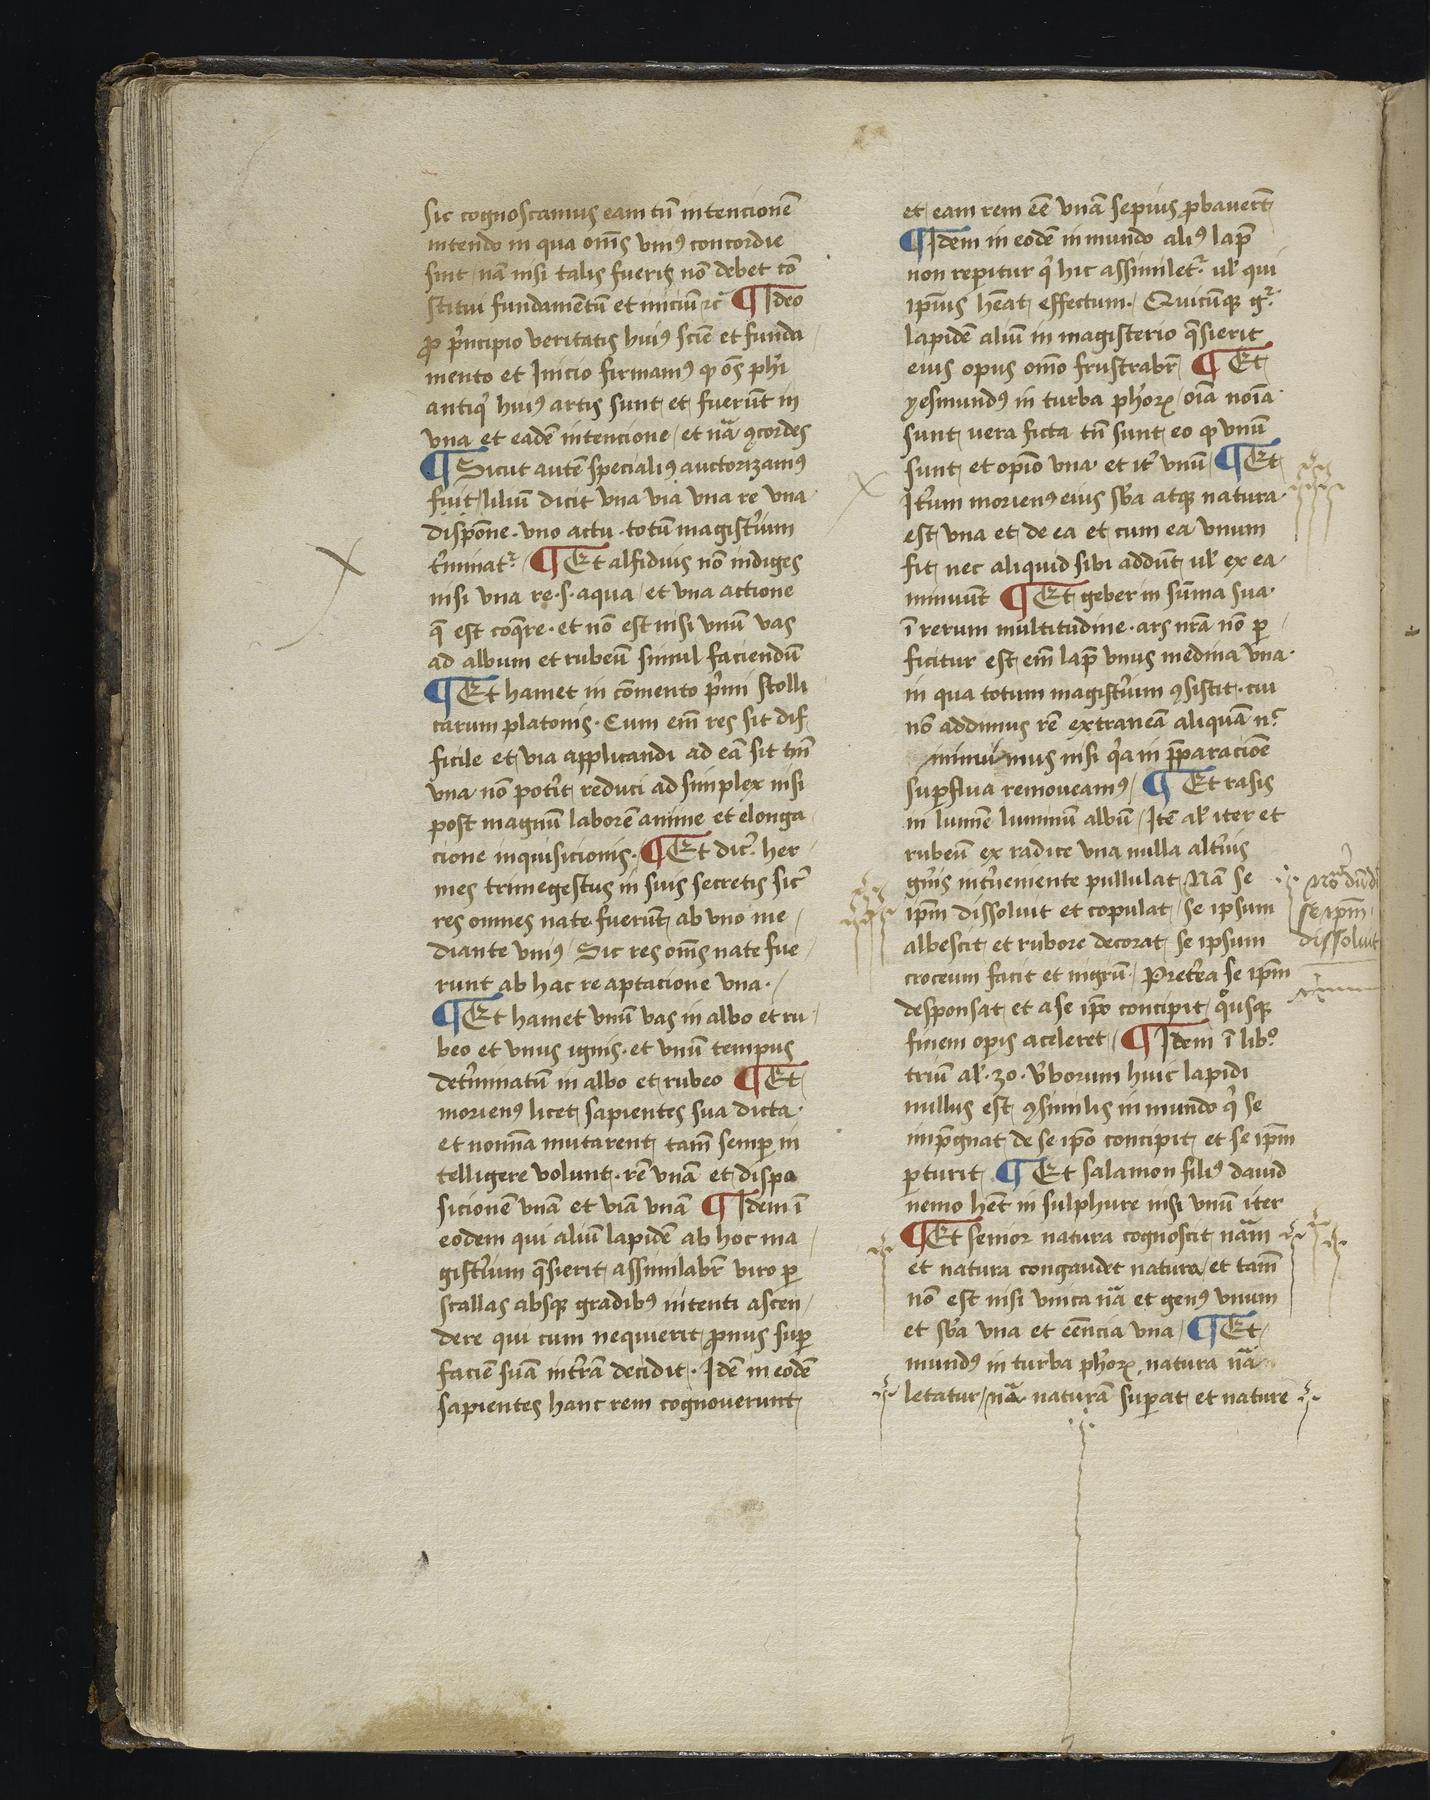 sic cognoscamus eam tñ intencionē
intendo in qua om̄s vniꝰ concordie
sint / nā nisi talis fuerit nō debet cō
stitui fundamētū et iniciū ⁊c̄ ¶ Ideo
ꝓ p̄ncipio veritatis huiꝰ sciē et funda
mento et Inicio firmamꝰ ꝙ oēs ph̄i
antiqͥ huiꝰ artis sunt et fuerūt in
vna et eadē intencione / et nā ꝯcordes
¶ Sicut autē specialiꝰ auctorizamꝰ
fuit / lilium dicit vna via vna re vna
disp̄oē · vno actu · totū magist̄ium
t̄minatᷣ / ¶ Et alfidius nō indiges
nisi vna re · s · aqua / et vna actione
q̄ est coq̄re · et nō est nisi vnū vas
ad album et rubeū simul faciendū
¶ Et hamet in cōmento p̄mi stolli
carum platonis · Cum em̄ res sit dif
ficile et via applicandi ad eā sit tm̄
vna nō pot̄it reduci ad simplex nisi
post magnū laborē anime et elonga
cione inquisicionis · ¶ Et dicᷣ her
mes trimegestus in suis secretis sicᷣ
res omnes nate fuerūt ab vno me /
diante vniꝰ / Sic res om̄s nate fue /
runt ab hac re aptacione vna · /
¶ Et hamet vnū vas in albo et ru /
beo et vnus ignis · et vnū tempus
det̄minatū in albo et rubeo ¶ Et
morienꝰ licet sapientes sua dicta ·
et nomīa mutarent tam̄ semꝑ in
telligere volunt · rē vnā et dispo
sicionē vnā et viā vnā ¶ Idem ī
eodem qui aliū lapidē ab hoc ma /
gist̄ium q̄sierit assimilabr̄ viro ꝑ
scallas absqꝫ gradibꝰ nitenti ascen /
dere qui cum nequierit ꝓnus suꝑ
faciē suā int̄rā decidit · Idē in eodē
sapientes hanc rem cognouerunt
et eam rem eē vnā sepius ꝓbauer̄t
¶ Idem in eodē in mundo aliꝰ lap̄
non reꝑitur qͥ hic assimiletᷣ ul̄ qui
ip̄ius hēat effectum · / Quicūqꝫ gᷣ
lapidē aliū in magisterio q̄sierit
eius opus om̄o frustrabr̄ ¶ Et
yesmundꝰ in turba ph̄orꝝ / oīa noīa
sunt vera ficta tn̄ sunt eo ꝙ vnū
sunt et opīo vna et it̄ vnū / ¶ Et
It̄um morienꝰ eius sb̄a atqꝫ natura
est vna et de ea et cum ea vnum
fit nec aliquid sibi addūt ul̄ ex ea
minuūt ¶ Et geber in sūma sua ·
ī rerum multitudine · ars nr̄a nō ꝑ
ficitur est em̄ lap̄ vnus medina vna ·
in qua totum magist̄ium ꝯsistit · cui
nō addimus rē extraneā aliquā nᷣ
minuimus nisi qͥa in p̄paracioē
suꝑflua remoueamꝰ / ¶ Et rasis
in lumē luminū albū / Itē al̄ iter et
rubeū ex radice vna nulla alt̄ius
gn̄is int̄ueniente pullulat Nā se
ip̄m dissoluit et copulat se ipsum
albescit et rubore decorat se ipsum
croceum facit et nigrū · / Pret̄ea se ip̄m
desponsat et a se ip̄o concipit qͦusqꝫ
finem opis aceleret / ¶ Idem ī libᷣo
triū al̄ · 30 · v̄borum huic lapidi
nullus est ꝯsimilis in mundo qͥ se
imp̄gnat de se ip̄o concipit et se ip̄m
ꝑturit ¶ Et salamon filiꝰ dauid
nemo hēt in sulphure nisi vnū iter
¶ Et senior natura cognoscit nām
et natura congaudet natura / et tam̄
nō est nisi vnica nā et genꝰ vnum
et sb̄a vna et eēncia vna / ¶ Et
mundꝰ in turba ph̄orꝝ natura nā
letatur / nā naturā suꝑat et nature
se ip̄m
dissoluit